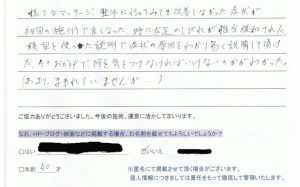 様々なマッサージ、整体に行ってみても改善しなかった症状が
初回の施術で良くなった。特に右足のしびれが相当緩和された。
模型を使った説明で症状の原因をわかり易く説明して頂け
た。そのおかげで何を気をつけなければいけないかがわかった。
(あまり、まもれていませんが…)
ご協力ありがとうございました。今後の施術、運営に活かしてまいります。
なお、HP・ブログ・紙面などに掲載する場合、お名前を載せてもよろしいでしょうか?
□はい
☑いいえ
□年齢 40 才
※匿名にて掲載させて頂く場合がございます。
個人情報につきましては責任をもって徹底して管理いたします。